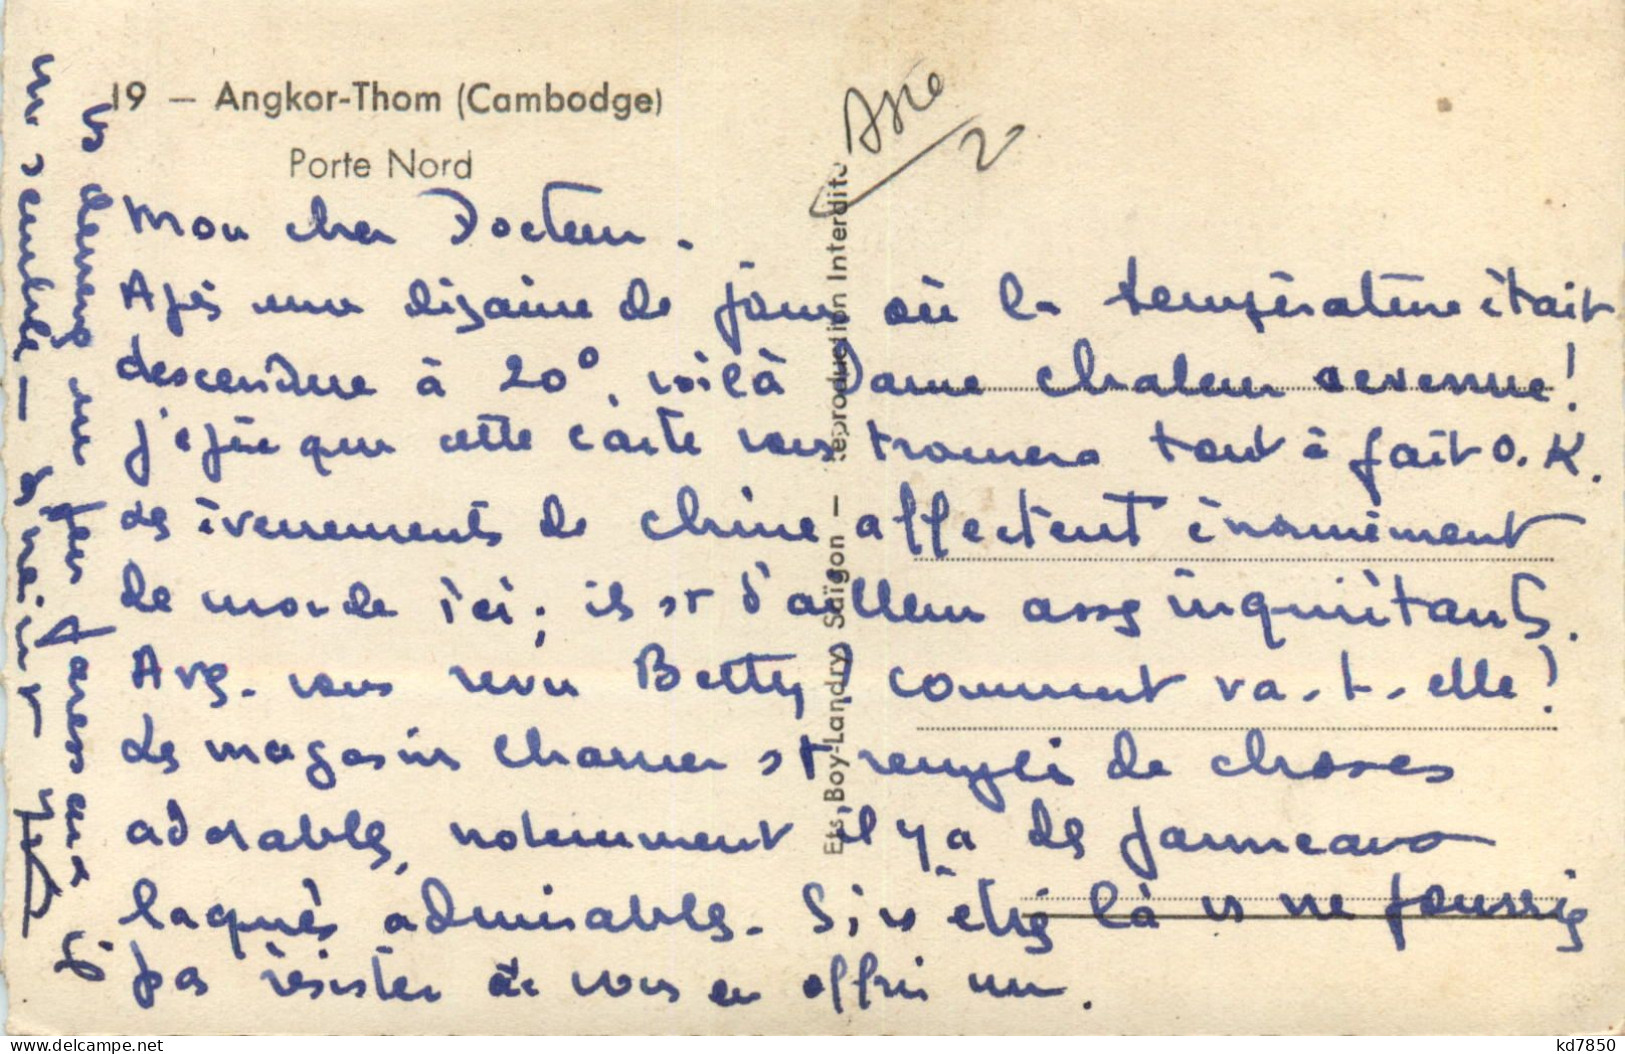 19 — Angkor-Thom (Cambodge)
Porte Nord
Asie
2
Ets Boy-Landry Saïgon — Reproduction Interdite
Mon cher Docteur.
Après une dizaine de jours où la température était
descendue à 20°, voilà Dame chaleur revenue!
J'espère que cette carte vous trouvera tout à fait O.K.
Les évènements de Chine affectent énormément
le monde ici; ils st d'ailleurs assez inquiétants.
Avez-vous revu Betty? comment va-t-elle?
Les magasins Charner st remplis de choses
adorables, notamment il y a des panneaux
laqués admirables. Si vs étiez là vs ne pourriez
pas résister à vous en offrir un.
Je
vs demens un peu
me semble —
kd7850